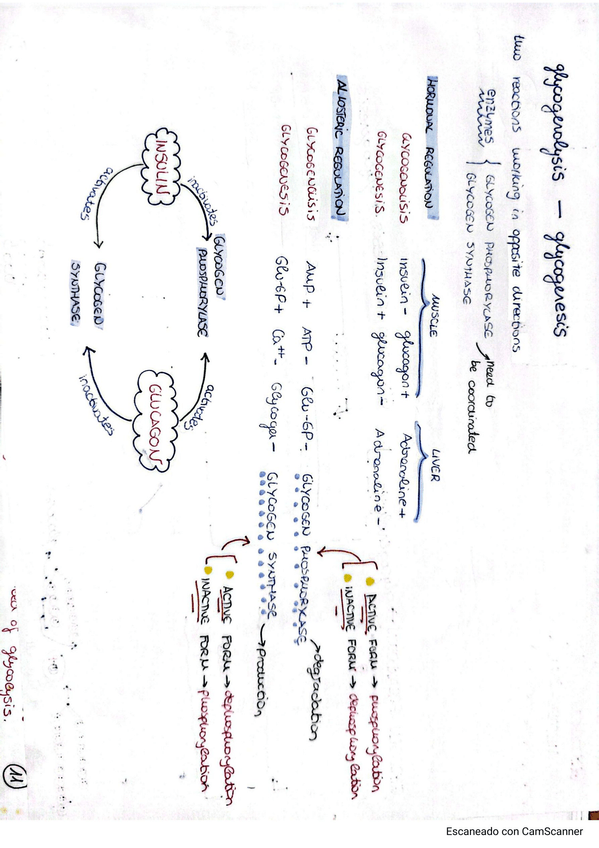 glycogenolysis — glycogenesis
two reactions working in opposite directions
enzymes { GLYCOGEN PHOSPHORYLASE → need to
GLYCOGEN SYNTHASE be coordinated
MUSCLE LIVER
HORMONAL REGULATION
GLYCOGENOLISIS Insulin - glucagon + Adrenaline +
GLYCOGENESIS Insulin + glucagon - Adrenaline -
ALLOSTERIC REGULATION
GLYCOGENOLISIS AMP + ATP - Glu-6P - GLYCOGEN PHOSPHORYLASE → degradation
GLYCOGENESIS Glu-6P + Ca++ - Glycogen - GLYCOGEN SYNTHASE → production
• ACTIVE FORM → phosphorylation
• INACTIVE FORM → dephosphorylation
• ACTIVE FORM → dephosphorylation
• INACTIVE FORM → phosphorylation
INSULIN
inactivates
activates
GLYCOGEN
PHOSPHORYLASE
GLYCOGEN
SYNTHASE
GLUCAGON
activates
inactivates
of glycolysis.
11
Escaneado con CamScanner